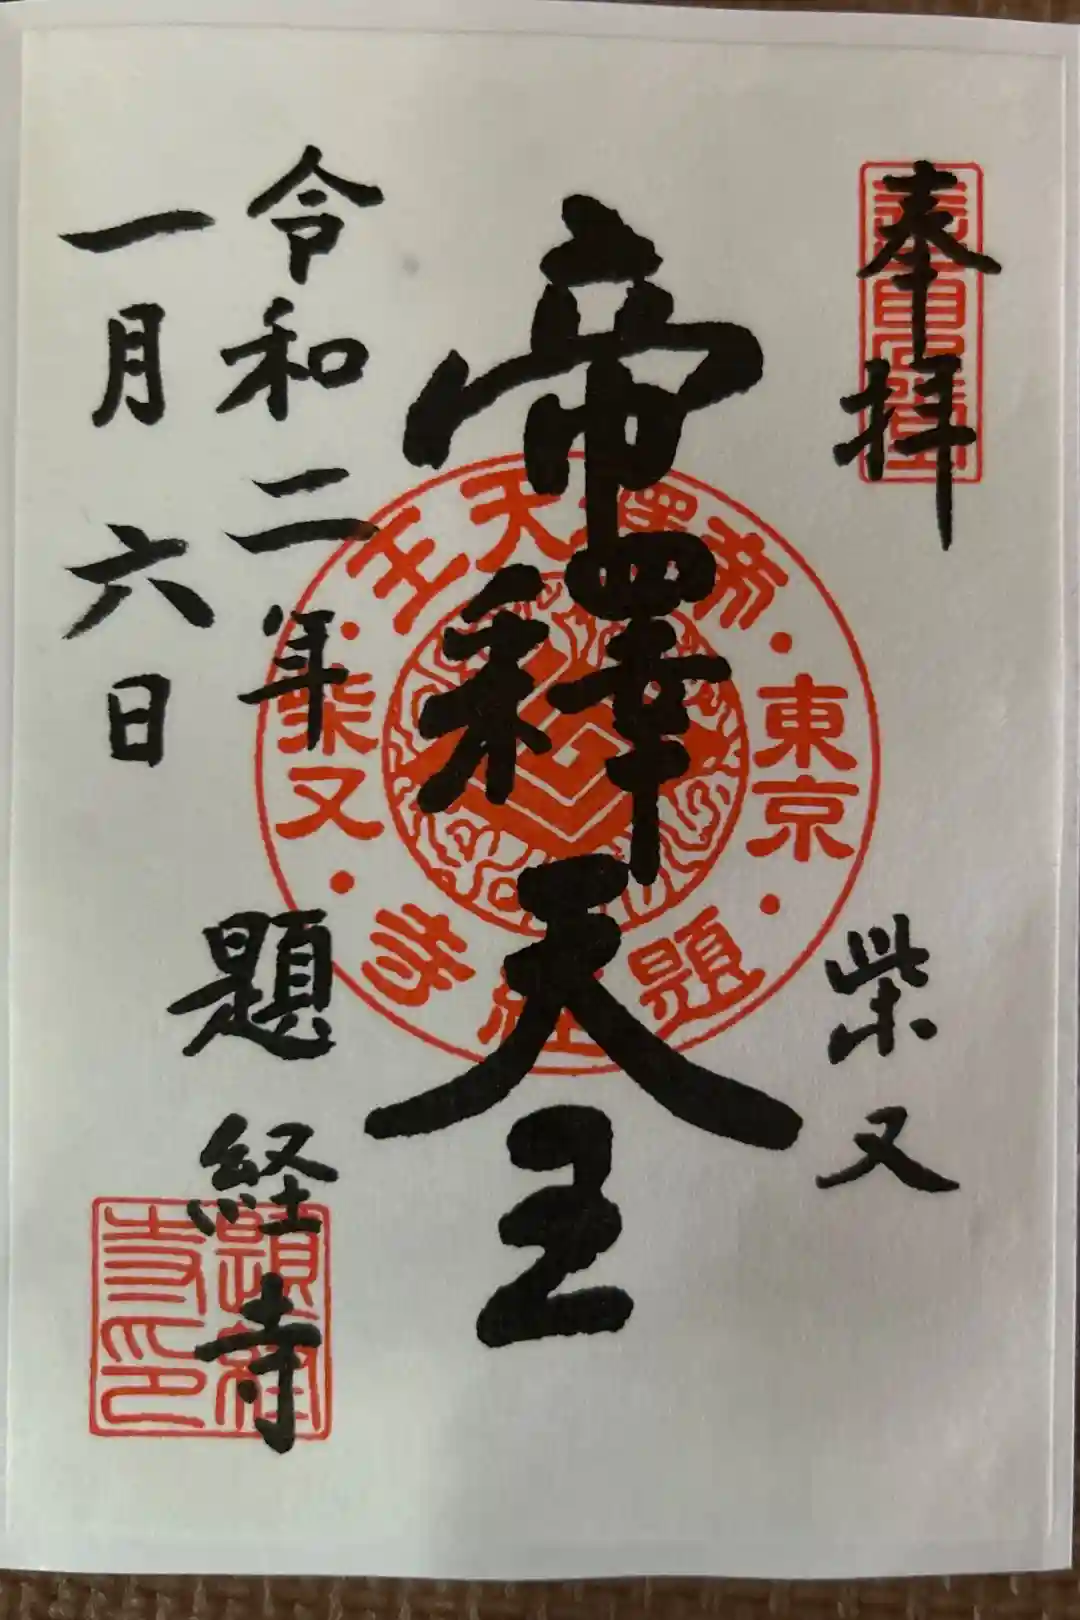 奉拝
柴又
帝釋天王
令和二年
一月六日
題経寺
帝釋天王
東京
柴又
題経寺
題経寺印